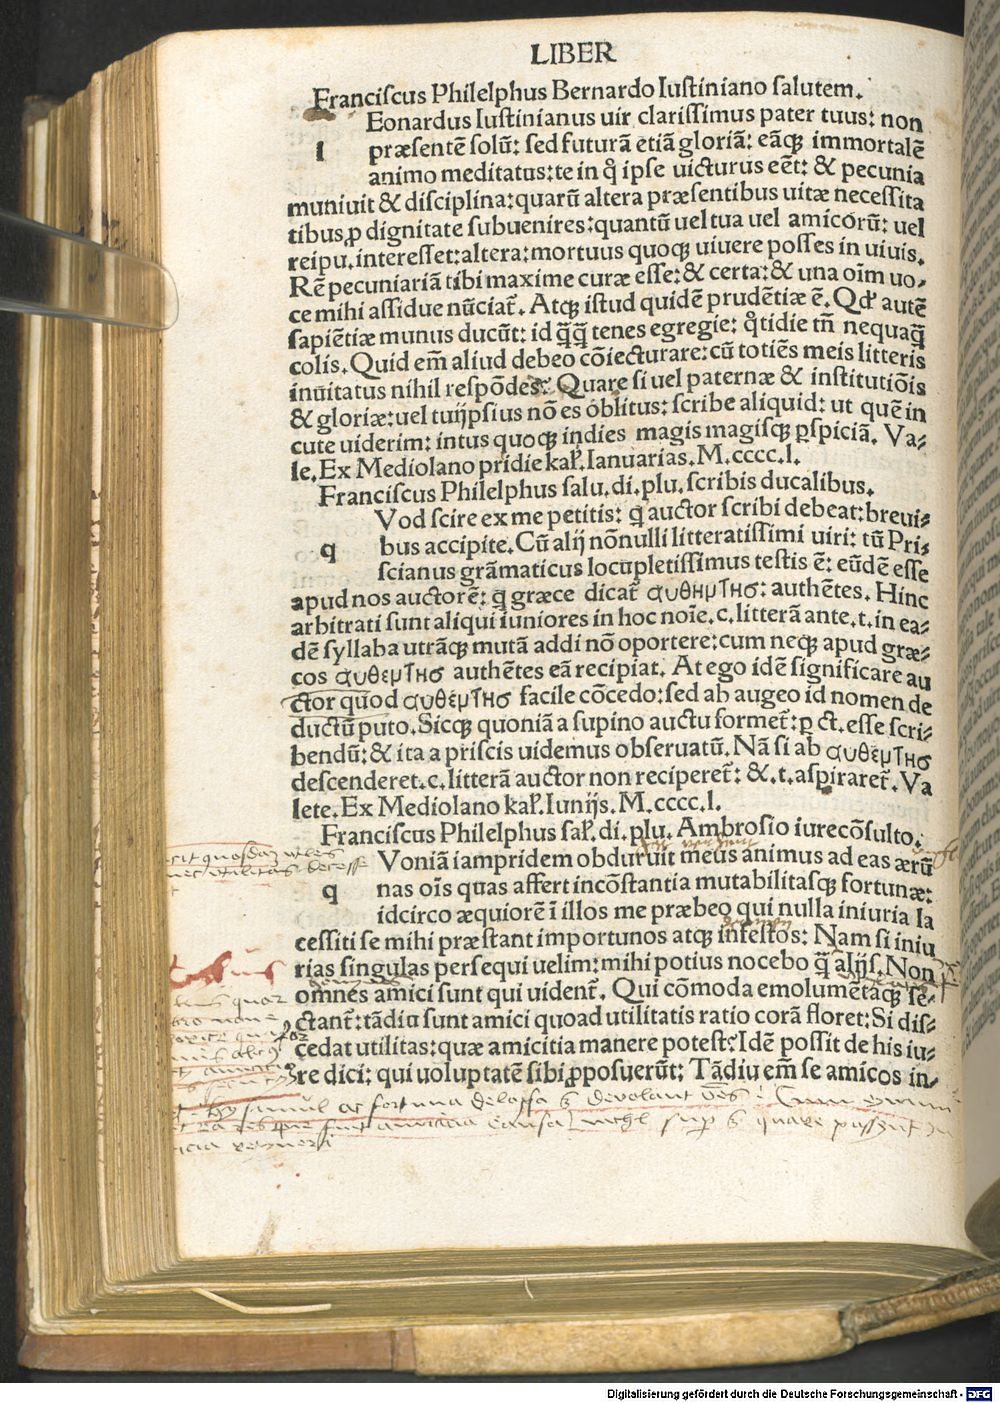 LIBER
Franciſcus Philelphus Bernardo Iuſtiniano ſalutem.
Eonardus Iuſtinianus uir clariſſimus pater tuus: non
l præſentē ſolū: ſed futurā etiā gloriā: eāqꝫ immortalē
animo meditatus: te in q̊ ipſe uicturus eēt: & pecunia
muniuit & diſciplina: quarū altera præſentibus uitæ neceſſita
tibus ꝓ dignitate ſubuenires: quantū uel tua uel amicorū: uel
reipu. intereſſet: altera: mortuus quoqꝫ uiuere poſſes in uiuis.
Rē pecuniariā tibi maxime curæ eſſe: & certa: & una oīm uo⸗
ce mihi aſſidue nūciat᷑. Atqꝫ iſtud quidē prudētiæ ē. Qđ autē
ſapiētiæ munus ducūt: id q̄q̄ tenes egregie: q̊tidie tn̄ nequaq̄
colis. Quid em̄ aliud debeo cōiecturare: cū totiēs meis litteris
inuitatus nihil reſpōdes: Quare ſi uel paternæ & inſtitutiōis
& gloriæ: uel tuijpſius nō es oblitus: ſcribe aliquid: ut quē in
cute uiderim: intus quoqꝫ indies magis magiſqꝫ ꝑſpiciā. Va⸗
le. Ex Mediolano pridie kaƚ. Ianuarias. M.cccc.l.
Franciſcus Philelphus ſalu. di. plu. ſcribis ducalibus.
Vod ſcire ex me petitis: q̄ auctor ſcribi debeat: breui⸗
q bus accipite. Cū alij nōnulli litteratiſſimi uiri: tū Pri⸗
ſcianus grāmaticus locupletiſſimus teſtis ē: eūdē eſſe
apud nos auctorē: q̄ græce dicat᷑ αυθημτησ: authētes. Hinc
arbitrati ſunt aliqui iuniores in hoc noīe. c. litterā ante. t. in ea⸗
dē ſyllaba utrāqꝫ mutā addi nō oportere: cum neqꝫ apud græ⸗
cos αυθεμτησ authētes eā recipiat. At ego idē ſignificare au
ctor quod αυθεμτησ facile cōcedo: ſed ab augeo id nomen de
ductū puto. Sicqꝫ quoniā a ſupino auctu formet᷑: ꝑ ct. eſſe ſcri⸗
bendū: & ita a priſcis uidemus obſeruatū. Nā ſi ab αυθεμτησ
deſcenderet. c. litterā auctor non reciperet᷑: &. t. aſpiraret᷑. Va
lete. Ex Mediolano kaƚ. Iunijs. M.cccc.l.
Franciſcus Philelphus ſaƚ. di. plu. Ambroſio iurecōſulto.
Voniā iampridem obduruit meus animus ad eas ærū
q nas oīs quas affert incōſtantia mutabilitaſqꝫ fortunæ:
idcirco æquiorē ī illos me præbeo qui nulla iniuria la
ceſſiti ſe mihi præſtant importunos atqꝫ infeſtos: Nam ſi iniu
rias ſingulas perſequi uelim: mihi potius nocebo q̄ alijs. Non
omnes amici ſunt qui uident᷑. Qui cōmoda emolumētaqꝫ ſe⸗
ctant᷑: tādiu ſunt amici quoad utilitatis ratio corā floret: Si diſ⸗
cedat utilitas: quæ amicitia manere poteſt? Idē poſſit de his iu⸗
re dici: qui uoluptatē ſibi ꝓpoſuerūt: Tādiu em̄ ſe amicos in⸗
simul ac fortuna delapsa devolant oēs
Digitalisierung gefördert durch die Deutsche Forschungsgemeinschaft - DFG